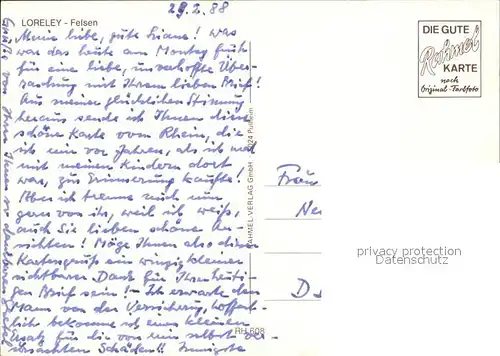 29.2.88
LORELEY - Felsen
Meine liebe, gute Liane! was
war das heute am Montag früh
für eine liebe, unverhoffte Über-
raschung mit Ihrem lieben Brief!
Aus meiner glücklichen Stimmung
heraus sende ich Ihnen diese
schöne Karte vom Rhein, die
ich mir vor Jahren, als ich mal
mit meinen Kindern dort
war, zur Erinnerung kaufte!
Aber ich trenne mich nun
gern von ihr, weil ich weiß,
auch Sie lieben schöne An-
sichten! Möge Ihnen also dieser
Kartengruß ein winzig kleiner
sichtbarer Dank für Ihren heuti-
gen Brief sein! - Ich erwarte den
Mann von der Versicherung, hoffent-
lich bekomme ich einen kleinen
Ersatz für die von mir selbst ver-
ursachten Schäden!! Innigste
Grüße von Ihrer Ihnen so dankbaren
DIE GUTE
Rahmel
KARTE
nach
Original-Farbfoto
RAHMEL-VERLAG GmbH 5024 Pulheim
RH 608
Frau
Ne
D
privacy protection
www.ansichtskarten-lexikon.de